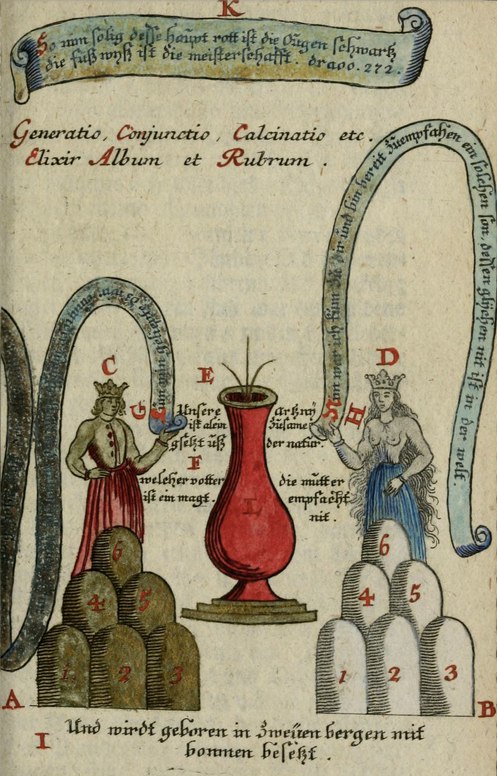 K
So nun solig desse haupt rott ist die Ougen schwartz
die füß wyß ist die meisterschafft. draoo. 272.
Generatio, Conjunctio, Calcinatio etc.
Elixir Album et Rubrum.
Nun wer ich küm zu dir und bin bereit zuempfahen ein solchen son, dessen glichen nit ist in der welt.
C
D
E
G
H
Unsere artzny
ist alein zusame
gsetzt uß der natur.
F
welcher votter die mutter
ist ein magt. empfacht
nit.
L
6
4 5
1 2 3
6
4 5
1 2 3
A
B
I
Und wirdt geboren in zweüen bergen mit
bommen besetzt.